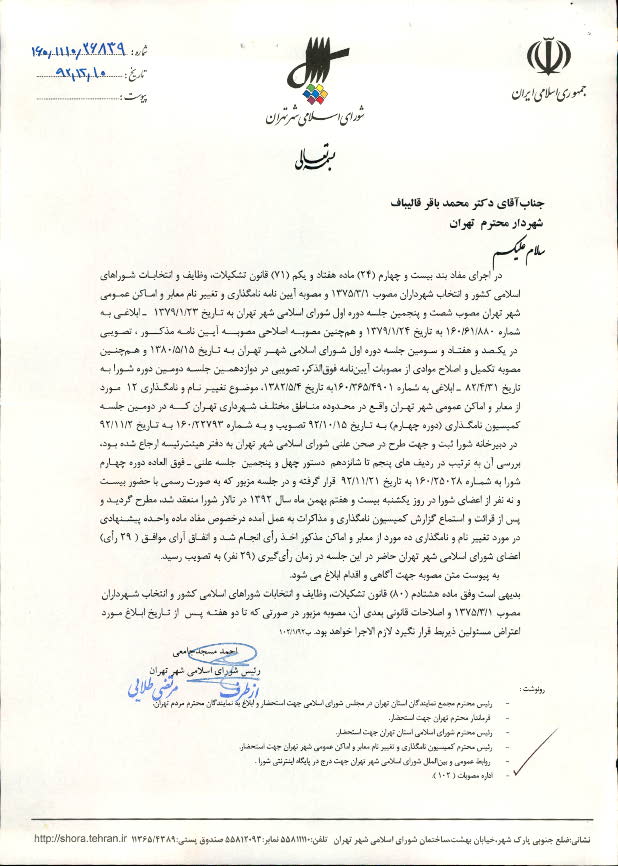 جمهوری اسلامی ایران
شورای اسلامی شهر تهران
شماره: ۱۶۰/۱۱۱۰/۲۶۸۳۹
تاریخ: ۹۲/۱۲/۱۰
پیوست:
بسمه تعالی
جناب آقای دکتر محمد باقر قالیباف
شهردار محترم تهران
سلام علیکم
در اجرای مفاد بند بیست و چهارم (۲۴) ماده هفتاد و یکم (۷۱) قانون تشکیلات، وظایف و انتخابات شوراهای
اسلامی کشور و انتخاب شهرداران مصوب ۱۳۷۵/۳/۱ و مصوبه آیین نامه نامگذاری و تغییر نام معابر و اماکن عمومی
شهر تهران مصوب شصت و پنجمین جلسه دوره اول شورای اسلامی شهر تهران به تاریخ ۱۳۷۹/۱/۲۳ ـ ابلاغی به
شماره ۱۶۰/۶۱/۸۸۰ به تاریخ ۱۳۷۹/۱/۲۴ و هم‌چنین مصوبه اصلاحی مصوبه آیین نامه مذکور، تصویبی
در یکصد و هفتاد و سومین جلسه دوره اول شورای اسلامی شهر تهران به تاریخ ۱۳۸۰/۵/۱۵ و هم‌چنین
مصوبه تکمیل و اصلاح موادی از مصوبات آیین‌نامه فوق‌الذکر، تصویبی در دوازدهمین جلسه دومین دوره شورا به
تاریخ ۸۲/۴/۳۱ ـ ابلاغی به شماره ۱۶۰/۳۶۵/۴۹۰۱به تاریخ ۱۳۸۲/۵/۴، موضوع تغییر نام و نامگذاری ۱۲ مورد
از معابر و اماکن عمومی شهر تهران واقع در محدوده مناطق مختلف شهرداری تهران که در دومین جلسه
کمیسیون نامگذاری (دوره چهارم) به تاریخ ۹۲/۱۰/۱۵ تصویب و به شماره ۱۶۰/۲۲۷۹۳ به تاریخ ۹۲/۱۱/۲
در دبیرخانه شورا ثبت و جهت طرح در صحن علنی شورای اسلامی شهر تهران به دفتر هیئت‌رئیسه ارجاع شده بود،
بررسی آن به ترتیب در ردیف های پنجم تا شانزدهم دستور چهل و پنجمین جلسه علنی ـ فوق العاده دوره چهارم
شورا به شماره ۱۶۰/۲۵۰۲۸ به تاریخ ۹۲/۱۱/۲۱ قرار گرفته و در جلسه مزبور که به صورت رسمی با حضور بیست
و نه نفر از اعضای شورا در روز یکشنبه بیست و هفتم بهمن ماه سال ۱۳۹۲ در تالار شورا منعقد شد، مطرح گردید و
پس از قرائت و استماع گزارش کمیسیون نامگذاری و مذاکرات به عمل آمده درخصوص مفاد ماده واحده پیشنهادی
در مورد تغییر نام و نامگذاری ده مورد از معابر و اماکن مذکور اخذ رأی انجام شد و اتفاق آرای موافق ( ۲۹ رأی)
اعضای شورای اسلامی شهر تهران حاضر در این جلسه در زمان رأی‌گیری (۲۹ نفر) به تصویب رسید.
به پیوست متن مصوبه جهت آگاهی و اقدام ابلاغ می شود.
بدیهی است وفق ماده هشتادم (۸۰) قانون تشکیلات، وظایف و انتخابات شوراهای اسلامی کشور و انتخاب شهرداران
مصوب ۱۳۷۵/۳/۱ و اصلاحات قانونی بعدی آن، مصوبه مزبور در صورتی که تا دو هفته پس از تاریخ ابلاغ مورد
اعتراض مسئولین ذیربط قرار نگیرد لازم الاجرا خواهد بود. ب۱۰۲/۱/۹۲
احمد مسجدجامعی
رئیس شورای اسلامی شهر تهران
از طرف مرتضی طلایی
رونوشت :
- رئیس محترم مجمع نمایندگان استان تهران در مجلس شورای اسلامی جهت استحضار و ابلاغ به نمایندگان محترم مردم تهران.
- فرماندار محترم تهران جهت استحضار.
- رئیس محترم شورای اسلامی استان تهران جهت استحضار.
- رئیس محترم کمیسیون نامگذاری و تغییر نام معابر و اماکن عمومی شهر تهران جهت استحضار.
- روابط عمومی و بین‌الملل شورای اسلامی شهر تهران جهت درج در پایگاه اینترنتی شورا .
- اداره مصوبات ( ۱۰۲ ).
نشانی:ضلع جنوبی پارک شهر،خیابان بهشت،ساختمان شورای اسلامی شهر تهران تلفن:۵۵۸۱۱۱۱۰ نمابر:۵۵۸۱۲۰۹۳ صندوق پستی:۱۱۳۶۵/۴۳۸۹ http://shora.tehran.ir